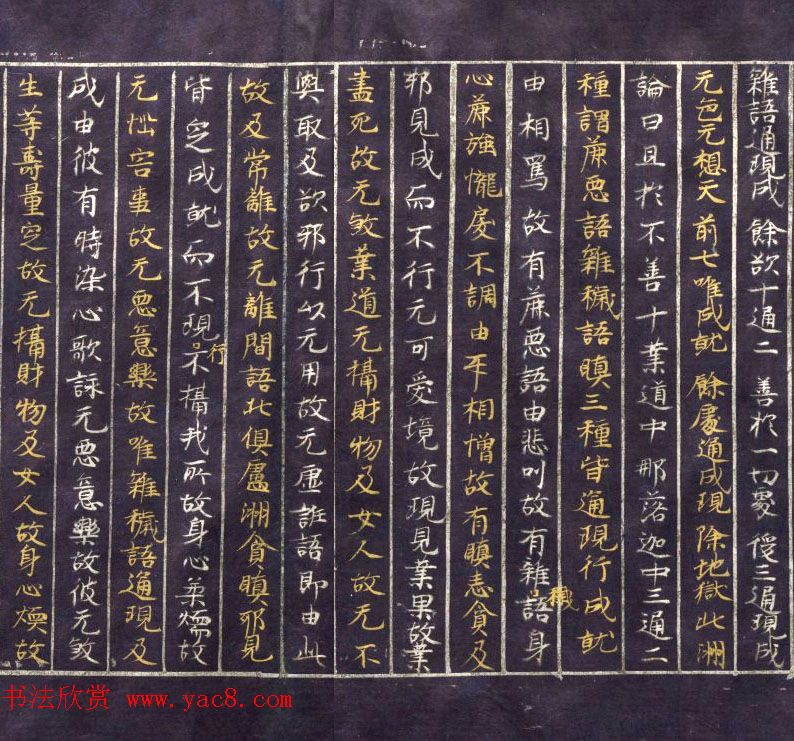 雜語通現成 餘欲十通二 善於一切處 後三通現成
无色无想天 前七唯成就 餘處通成現 除地獄北洲
論曰且於不善十業道中那落迦中三通二
種謂麁惡語雜穢語瞋三種皆通現行成就
由相罵故有麁惡語由悲叫故有雜穢語身
心麁強㦨悷不調由互相憎故有瞋恚貪及
邪見成而不行无可愛境故現見業果故業
盡死故无煞業道无攝財物及女人故无不
與取及欲邪行以无用故无虛誑語即由此
故及常離故无離間語北俱盧洲貪瞋邪見
皆定成就而不現行不攝我所故身心柔濡故
无惱害事故无惡意樂故唯雜穢語通現及
成由彼有時染心歌詠无惡意樂故彼无煞
生等壽量定故无攝財物及女人故身心煗故
书法欣赏 www.yac8.com